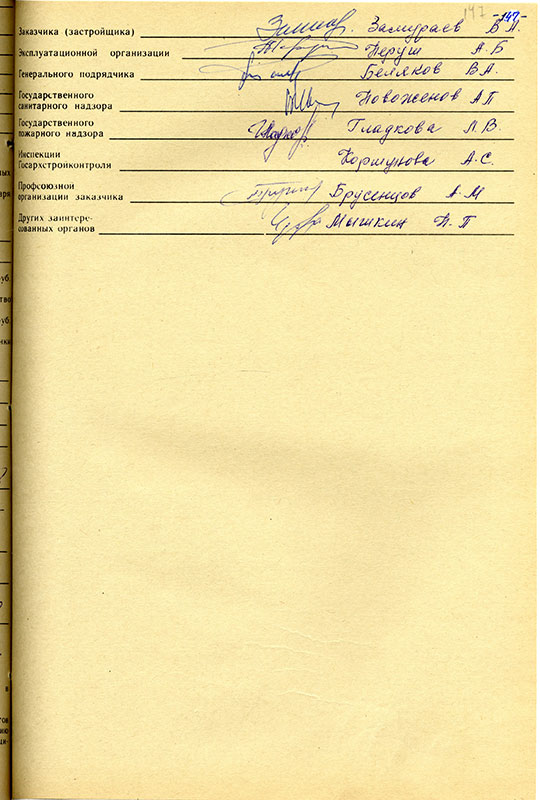 147
-147-
Заказчика (застройщика) Замураев В.П.
Эксплуатационной организации Перуш А.Б
Генерального подрядчика Беляков В.А.
Государственного
санитарного надзора Новоженов А П
Государственного
пожарного надзора Гладкова Л.В.
Инспекции
Госархстройконтроля Коршунова А.С.
Профсоюзной
организации заказчика Брусенцов А.М
Других заинтере-
сованных органов Мышкин П.П